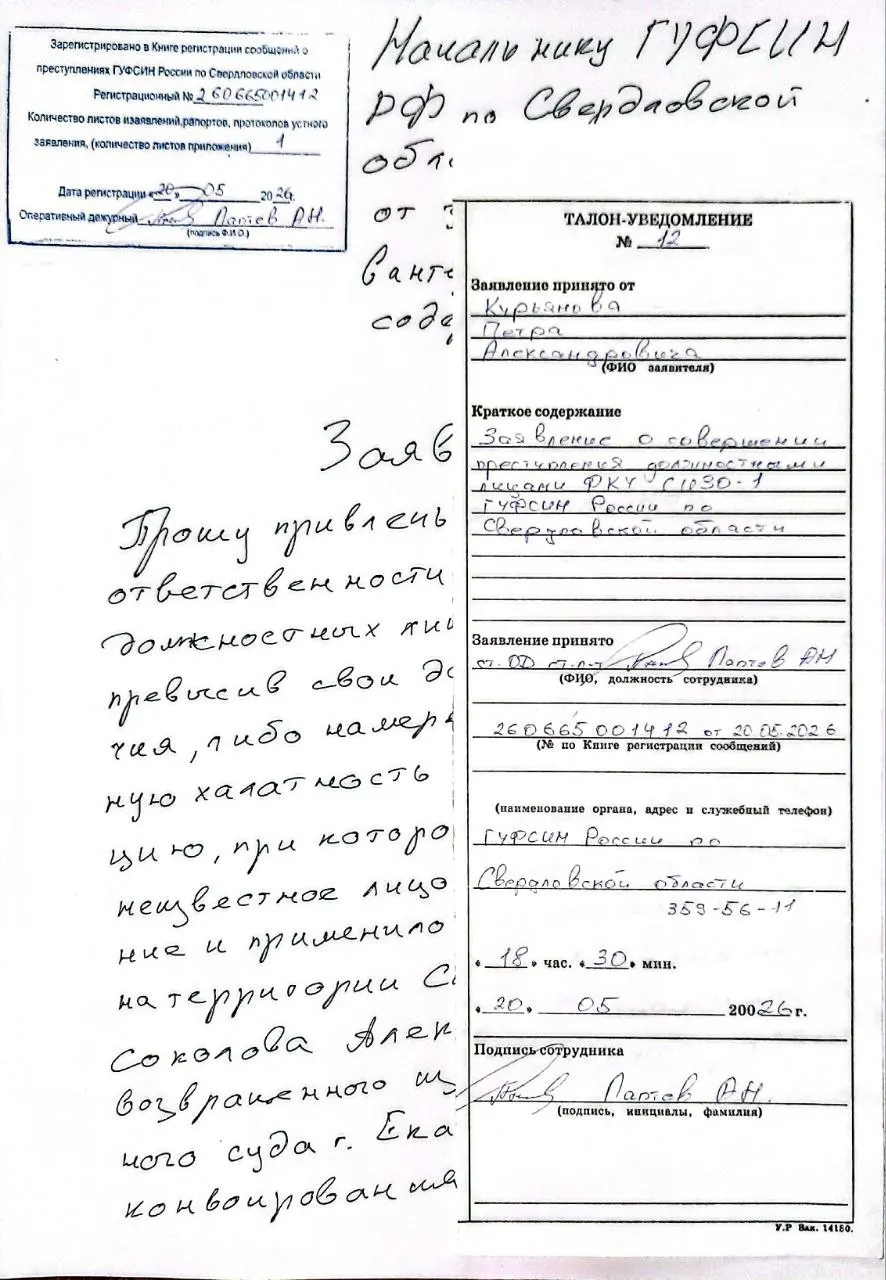 Зарегистрировано в Книге регистрации сообщений о
преступлениях ГУФСИН России по Свердловской области
Регистрационный № 260665001412
Количество листов изаявлений,рапортов, протоколов устного
заявления, (количество листов приложения) 1
Дата регистрации «20» 05 2026г.
Оперативный дежурный Лаптев А.Н.
(подпись Ф.И.О.)
Начальнику ГУФСИН
РФ по Свердловской
обл
от
ванте
соде
Заяв
Прошу привлечь
ответственности
должностных ли
превысив свои
чия, либо намер
ную халатность
цию, при которо
неизвестное лицо
ние и применило
на территории С
Соколова Алек
возвращенного из
ного суда г. Ека
конвоирования
ТАЛОН-УВЕДОМЛЕНИЕ
№ 12
Заявление принято от
Курьянова
Петра
Александровича
(ФИО заявителя)
Краткое содержание
Заявление о совершении
преступления должностными
лицами ФКУ СИЗО-1
ГУФСИН России по
Свердловской области
Заявление принято
ст. ОД ст. л-т Лаптев АН
(ФИО, должность сотрудника)
260665001412 от 20.05.2026
(№ по Книге регистрации сообщений)
(наименование органа, адрес и служебный телефон)
ГУФСИН России по
Свердловской области
359-56-11
«18» час. «30» мин.
«20» 05 20026г.
Подпись сотрудника
Лаптев А.Н.
(подпись, инициалы, фамилия)
У.Р Зак. 14180.